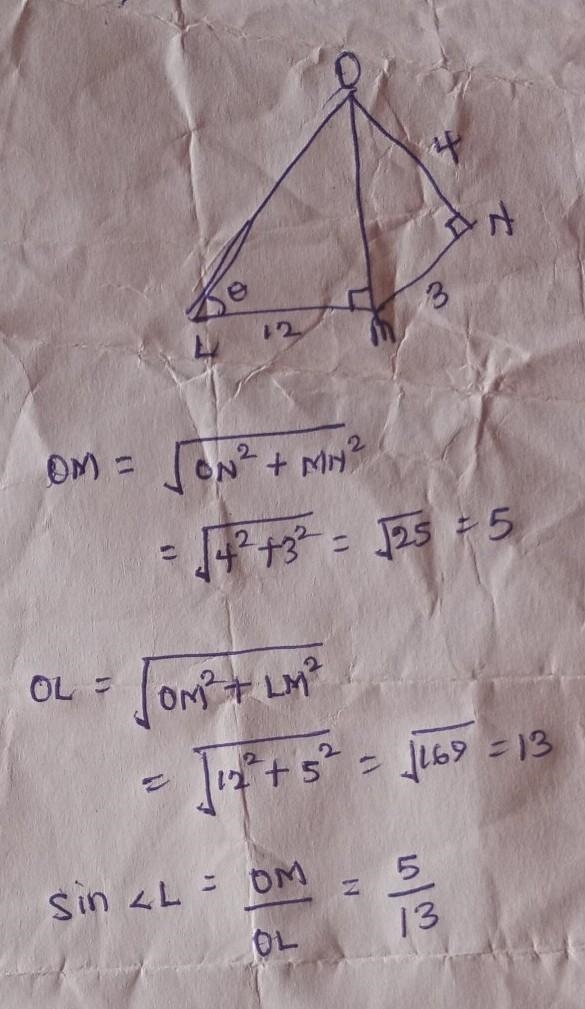 O
4
N
θ
3
12
L
M
OM = √ON² + MN²
= √4² + 3² = √25 = 5
OL = √OM² + LM²
= √12² + 5² = √169 = 13
sin ∠L = OM/OL = 5/13